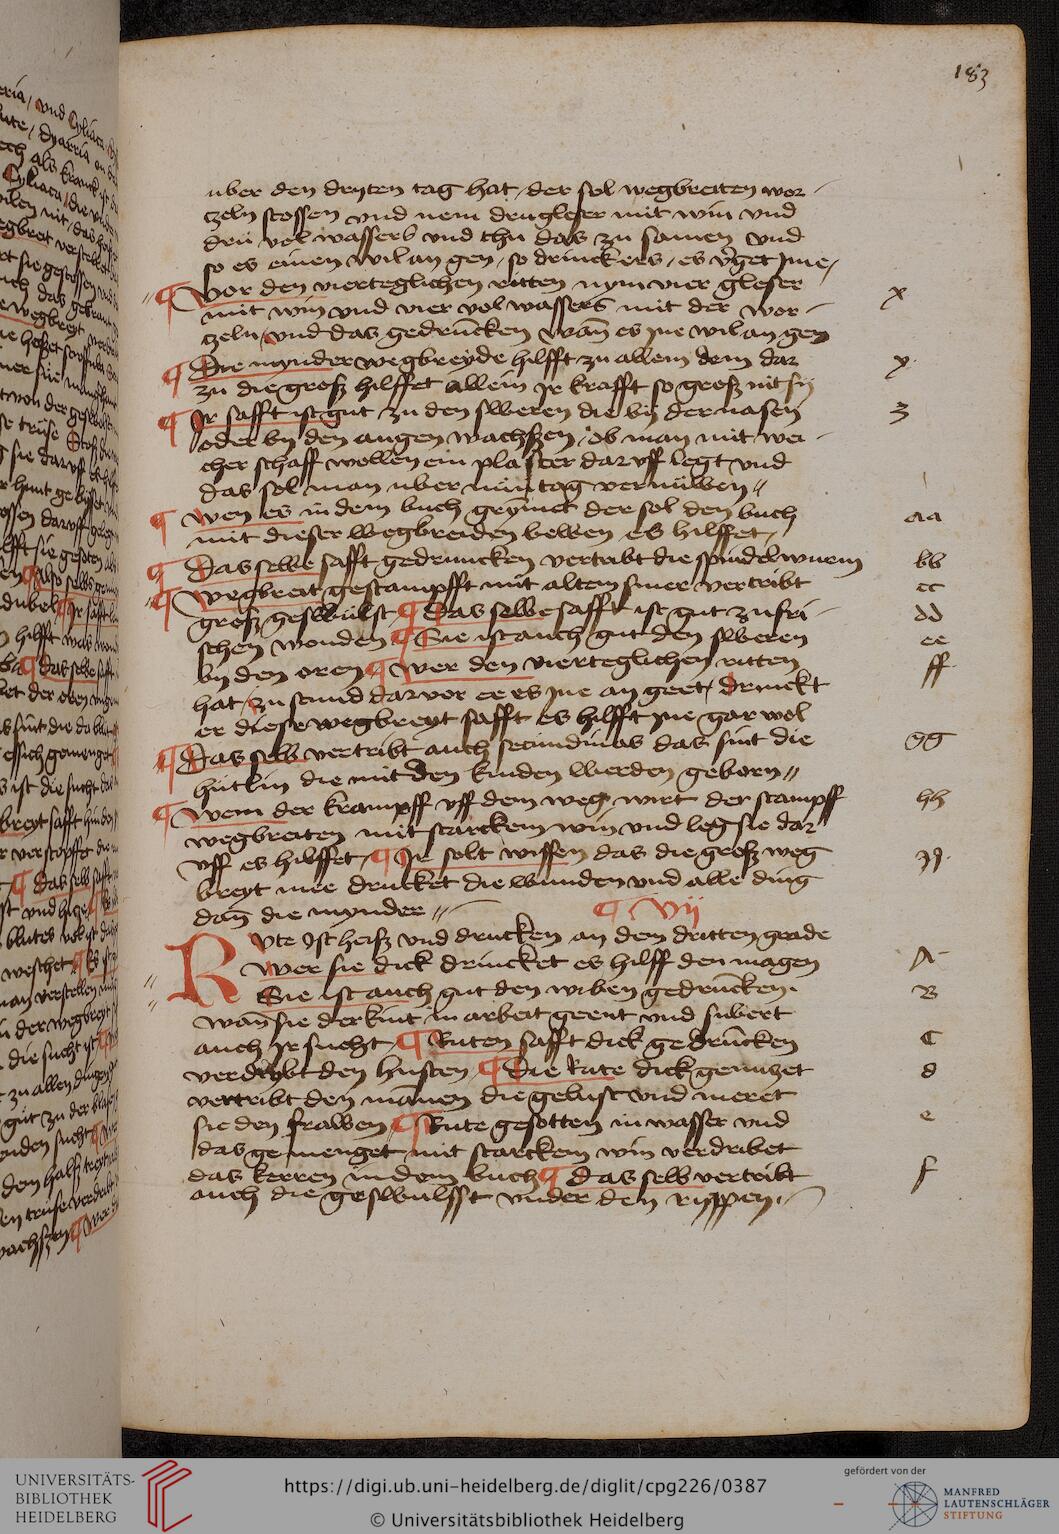 183
uber den dryten tag hat / der sol wegbreiten wor-
czeln stossen vnd nem dru gleser mit win vnd
dru vol wassers vnd thu das zu samen vnd
so es einen wil an gen / so drinck ers / es v͛get jme /
¶ Vor den vierteglichen ritten nym vier gleser
x
mit win vnd vier vol wassers mit der wor-
czeln / vnd das gedruncken wan̄ es jne wil an gen
¶ Die mynder wegbreyde hilfft zu allem dem dar
y
zu die grosz hilffet allein jr krafft so grosz nit sy
¶ Jr safft ist gut zu den sweren die by der nasen
z
oder by den augen wachszen / ob man mit wei-
cher schaff wollen ein plaster dar vff legt vnd
das sol man uber nun tag vernuwen //
¶ Wen es in dem buch grymet der sol den buch
aa
mit dieser wegbreiden bewen es hilffet /
¶ Das selbe safft gedruncken vertribt die spindelwurm
bb
¶ Wegbreit gestampfft mit altem smer vertribt
cc
grosz geswulst ¶ Das selbe safft ist gut zu fri-
dd
schen wonden ¶ Sie ist auch gut den sweren
ee
by den oren ¶ Wer den vierteglichen ritten
ff
hat / zu stund dar vor ee es jne an geet / drinckt
er diese wegbreyt safft es hilfft jne gar wol
¶ Das selb vertribt auch secundinas das sint die
gg
hutlin die mit den kinden werden geborn //
¶ Wem der krampff vff dem weg wirt der stampff
hh
wegbreiten mit starckem win vnd leg sie dar
vff es hilffet / ¶ Jr solt wissen das die grosz weg
jj
breyt mee drucket die wunden vnd alle ding
dan̄ die mynder //
¶ Vij
Rute Jst heisz vnd drucken an dem dritten grade
Wer sie dick drincket es hilff den magen
A
Sie ist auch gut den wiben gedruncken.
B
wan̄ sie der kint in arbeit geent vnd subert
auch jr sucht / ¶ Ruten safft dick gedruncken
C
verdrybt den husten / ¶ Die Rute dick genuczet
d
vertribt den mannen die gelust vnd meret
sie den frawen ¶ Rute gesotten in wasser vnd
e
das gemenget mit starckem win verdribet
das kerren in dem buch ¶ das selb vertribt
f
auch die geswulsst vnder den rippen.
UNIVERSITÄTS-
BIBLIOTHEK
HEIDELBERG
https://digi.ub.uni-heidelberg.de/diglit/cpg226/0387
© Universitätsbibliothek Heidelberg
gefördert von der
MANFRED
LAUTENSCHLÄGER
STIFTUNG